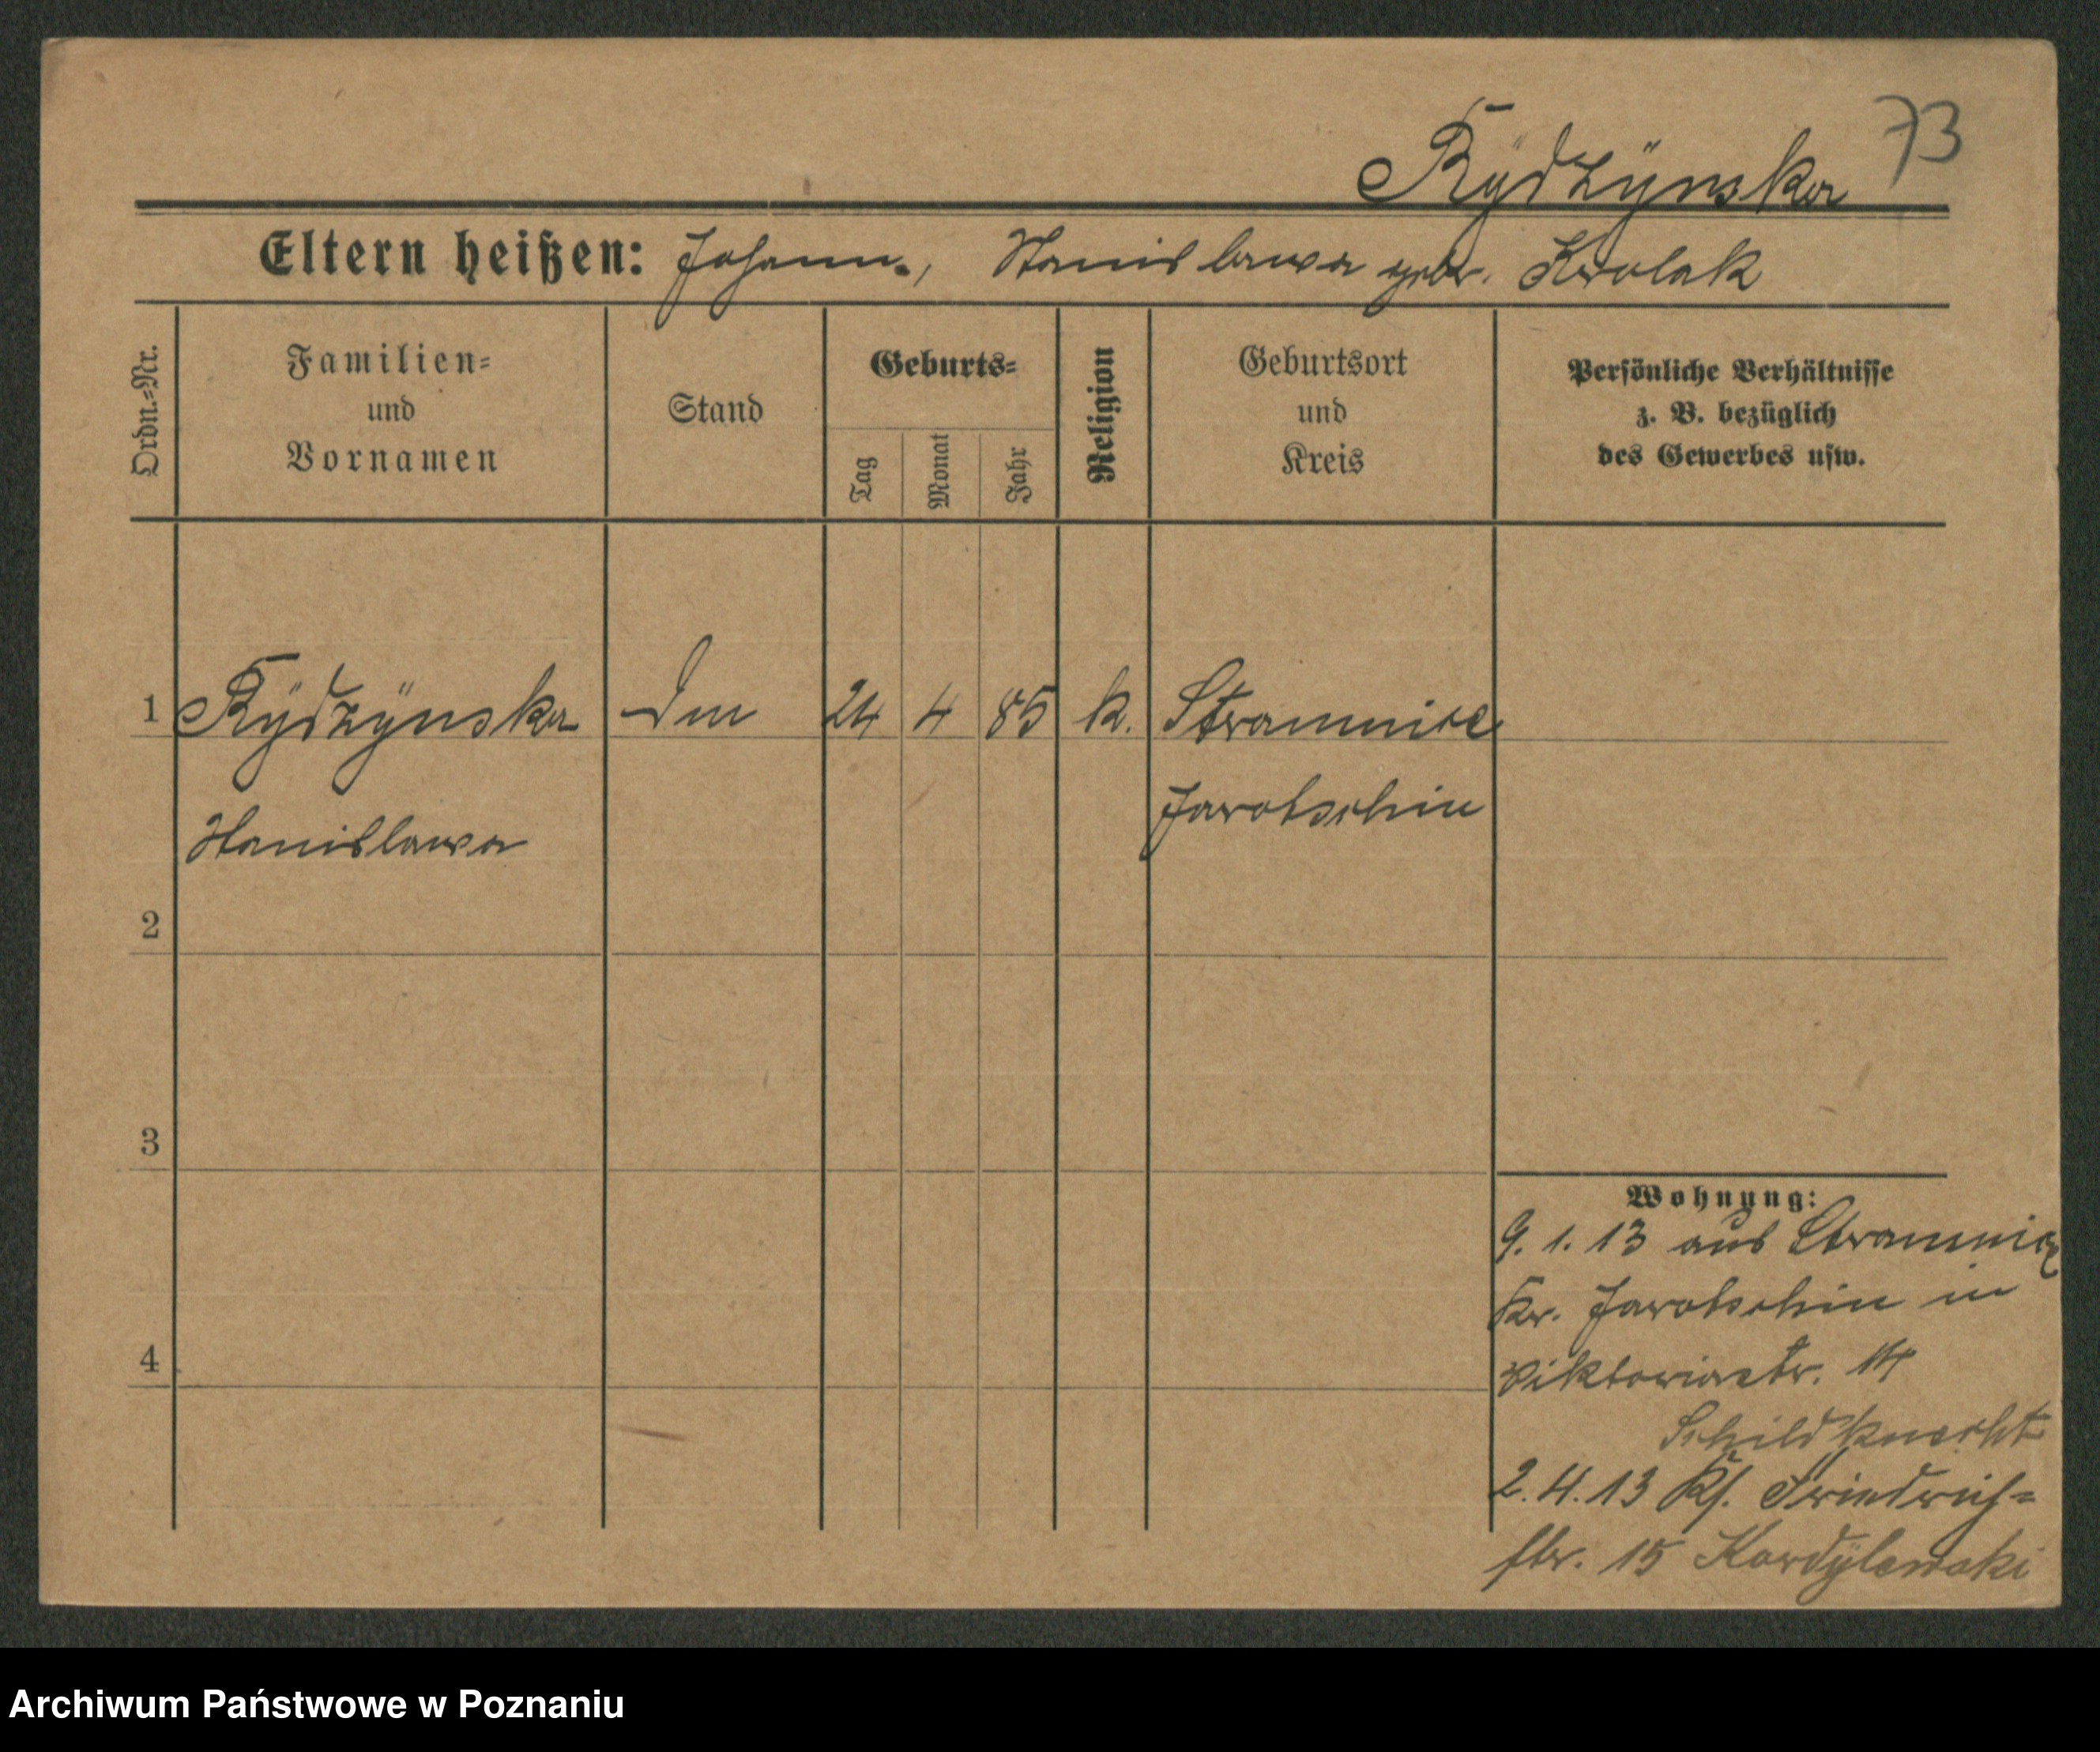 73
Rÿdzÿnska
Eltern heißen: Johann, Stanislawa geb. Krolak
Ordn.=Nr.
Familien=
und
Vornamen
Stand
Geburts=
Tag
Monat
Jahr
Religion
Geburtsort
und
Kreis
Persönliche Verhältnisse
z. B. bezüglich
des Gewerbes usw.
1 Rÿdzÿnska 24 4 85 k. Stramnice
Stanislawa Jarotschin
2
3
4
Wohnung:
9. 1. 13 aus Stramnice
Kr. Jarotschin in
Viktoriastr. 14
Schildknecht
2. 4. 13 Friedrich=
str. 15 Kordÿlewski
Archiwum Państwowe w Poznaniu